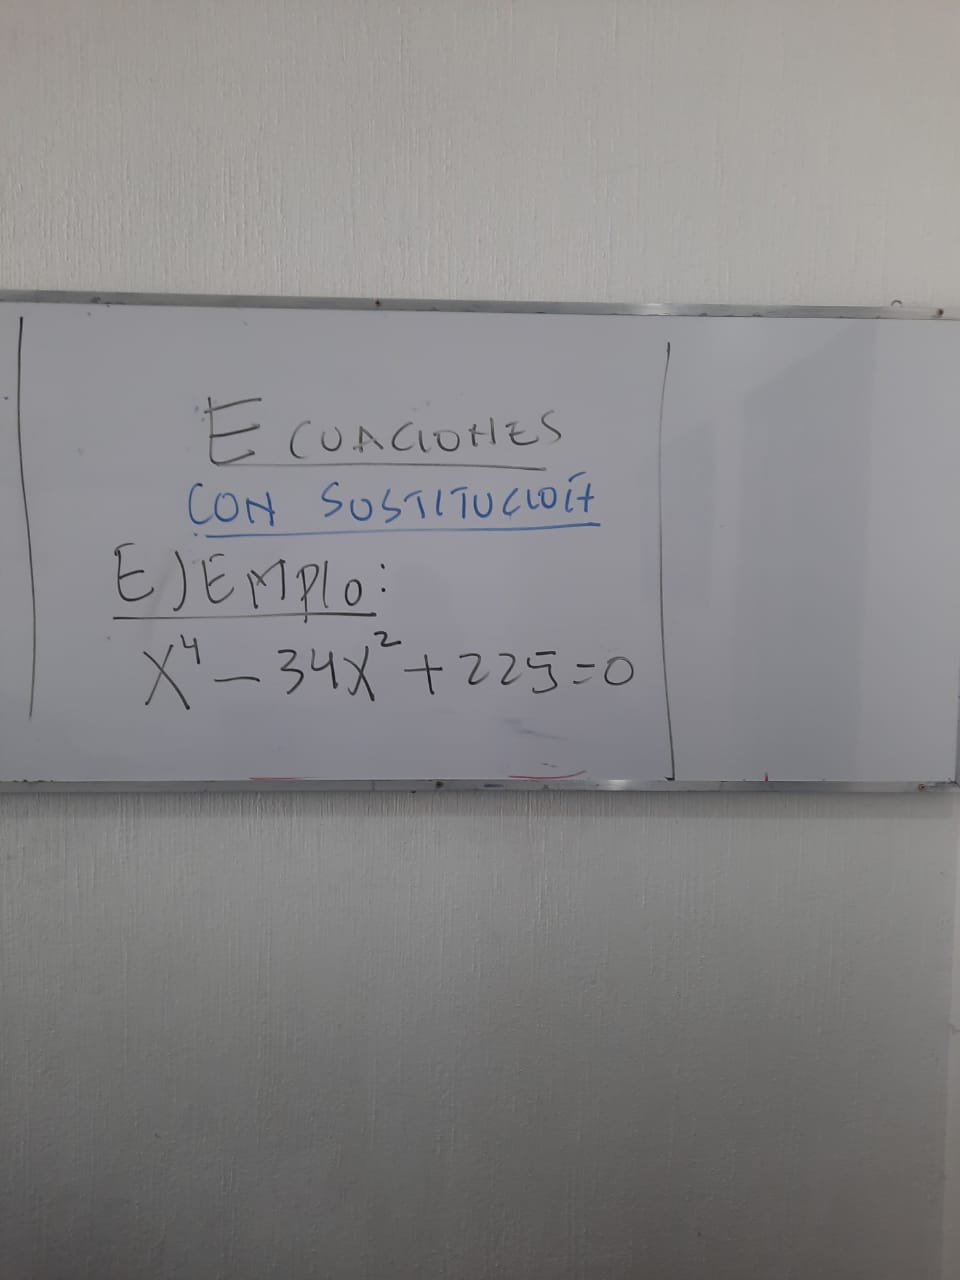 ECUACIONES
CON SUSTITUCIÓN
EJEMPLO:
x⁴ - 34x² + 225 = 0